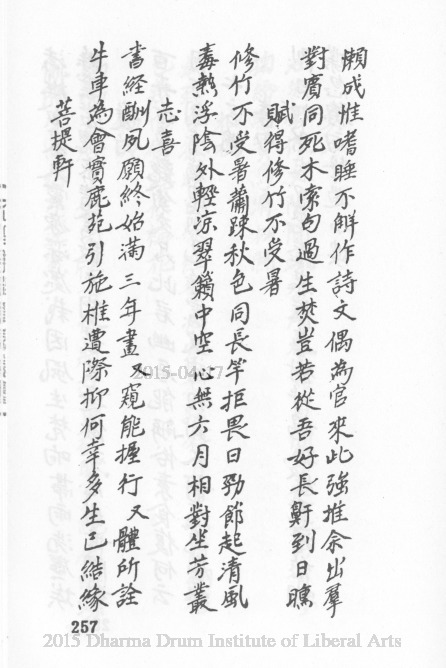 懶成惟嗜睡不解作詩文偶為官來此強推余出羣
對賓同死木索句過生焚豈若從吾好長鼾到日曛
賦得修竹不受暑
修竹不受暑蕭踈秋色同長竿拒畏日勁節起清風
毒熱浮陰外輕凉翠籟中空心無六月相對坐芳叢
志喜
書經酬夙願終始滿三年畫又窺能握行又體所詮
牛車為會實鹿苑引施權遭際抑何幸多生已結緣
菩提軒
257
2015-04-27
2015 Dharma Drum Institute of Liberal Arts